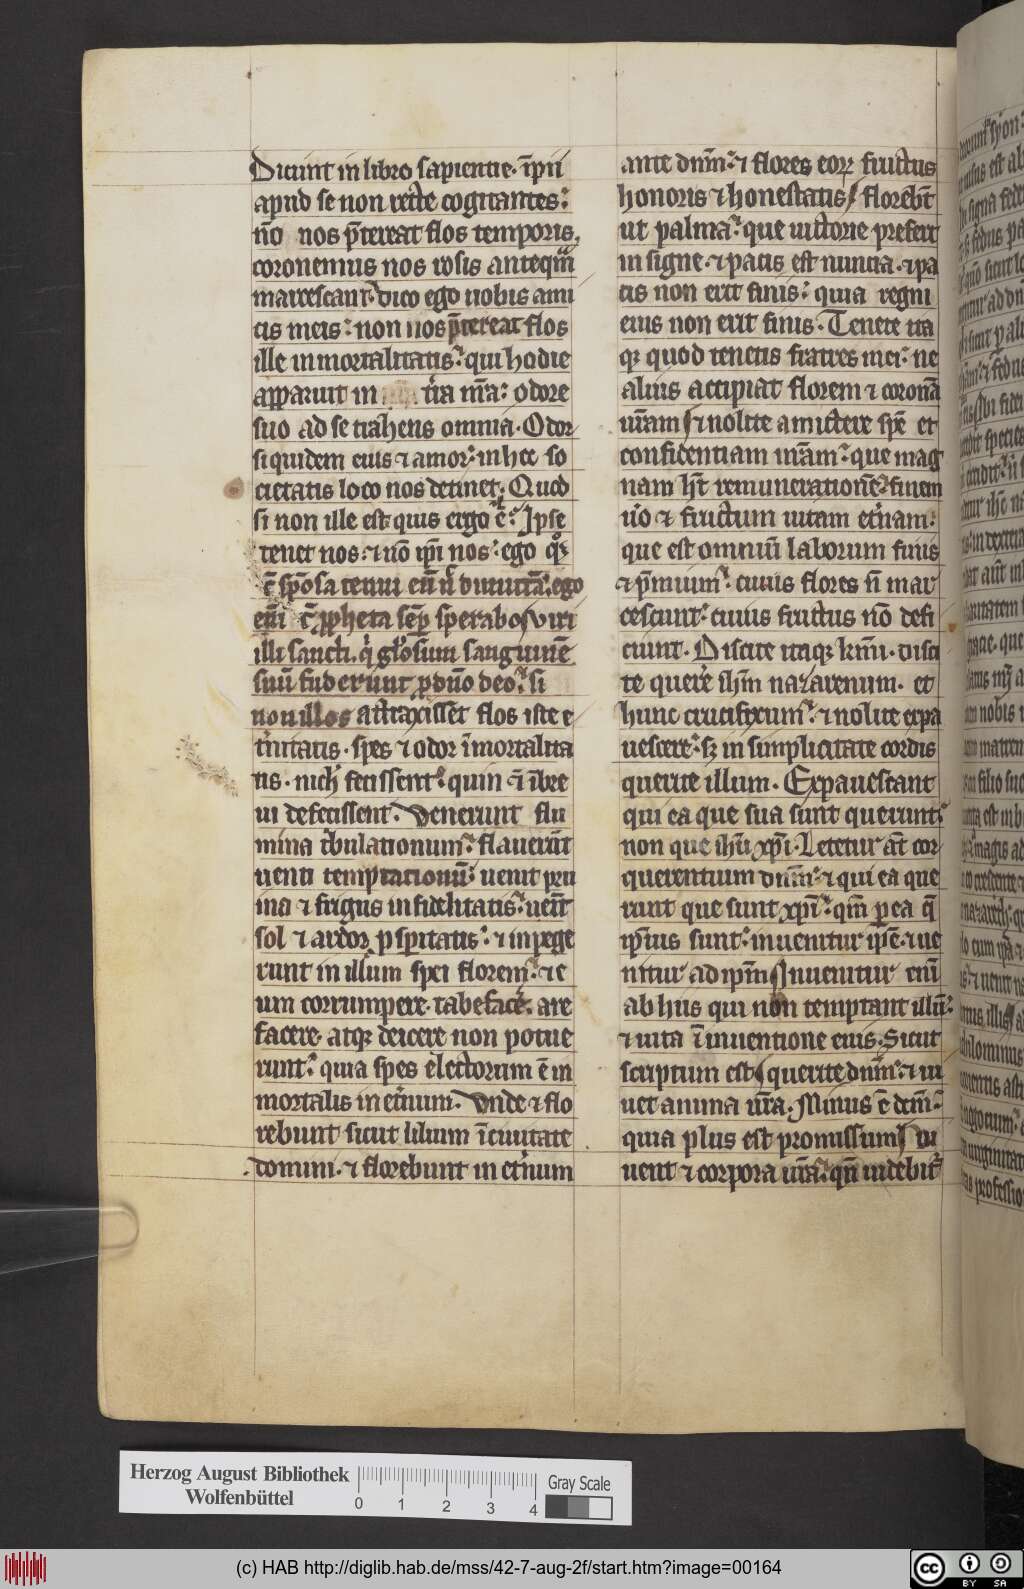 Dicunt in libro sapientie· īpii
apud se non recte cogitantes:
nō nos p̄tereat flos temporis.
coronemus nos rosis anteqm̄
marcescant· dico ego uobis ami
cis meis: non nos p̄tereat flos
ille inmortalitatis: qui hodie
apparuit in t̄ra nr̄a: odore
suo ad se trahens omnia· Odor
siquidem eius ⁊ amor: in hoc so
cietatis loco nos detinet· Quod
si non ille est quis ergo ē: Ipse
tenet nos: ⁊ nō ip̄i nos: ego
c̄ sp̄osa tenui eū nͨ dimittā: ego
c̄ ꝓpheta semꝑ sperabo viri
illi sancti· qͥ gl̓osum sanguinē
suū fuderunt ꝓ dn̄o deo: si
non illos attraxisset flos iste e
t̓nitatis· spes ⁊ odor īmortalita
tis· nich̓ fecissent: quin ⁊ ī bre
ui defecissent· Venerunt flu
mina t̓bulationum: flauerūt
uenti temptationū: uenit pru
ina ⁊ frigus infidelitatis: uen̄t
sol ⁊ ardor ꝓsꝑitatis: ⁊ inpege
runt in illum spei florem: ⁊ e
um corrumpere· tabefacē· are
facere· atqꝫ deicere non potue
runt: quia spes electorum ē in
mortalis in et̓num· Vnde ⁊ flo
rebunt sicut lilium ī ciuitate
domini· ⁊ florebunt in et̓num
ante dn̄m: ⁊ flores eoꝝ fructus
honoris ⁊ honestatis florēbt
ut palma: que uictorie prefert
insigne· ⁊ pacis est nuncia· ⁊ pa
cis non erit finis: quia regni
eius non erit finis· Tenete ita
qꝫ quod tenetis fratres mei: ne
alius accipiat florem ⁊ coronā
ur̄am ⁊ nolite amictere spē et
confidentiam ur̄am: que mag
nam h̄t remunerationē: finem
u̓o ⁊ fructum uitam et̓nam:
que est omniū laborum finis
⁊ p̄mium: cuius flores n̄ mar
cescunt: cuius fructus nō defi
ciunt· Discite itaqꝫ kr̄mi· disci
te querē ih̄m nazarenum· et
hunc crucifixum: ⁊ nolite expa
uescere: sꝫ in simplicitate cordis
querite illum· Expauescant
qui ea que sua sunt querunt:
non que ih̄u xp̄i· Letetur āt cor
querentium dn̄m: ⁊ qui ea que
runt que sunt xp̄i: qm̄ ꝑ ea q̄
ip̄ius sunt: inuenitur ip̄e: ⁊ ue
nitur ad ip̄m Inuenitur enī
ab hiis qui non temptant illū:
⁊ uita ī inuentione eius· Sicut
scriptum est querite dn̄m: ⁊ ui
uet anima ur̄a· Minus ē dcm̄:
quia plus est promissum Vi
uent ⁊ corpora ur̄a: qn̄ uidebit̓
Herzog August Bibliothek
Wolfenbüttel
0 1 2 3 4
Gray Scale
(c) HAB http://diglib.hab.de/mss/42-7-aug-2f/start.htm?image=00164
cc BY SA